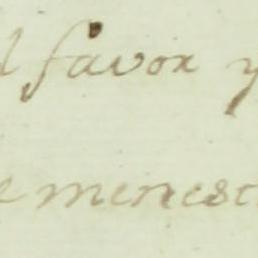 l favor y
e menest